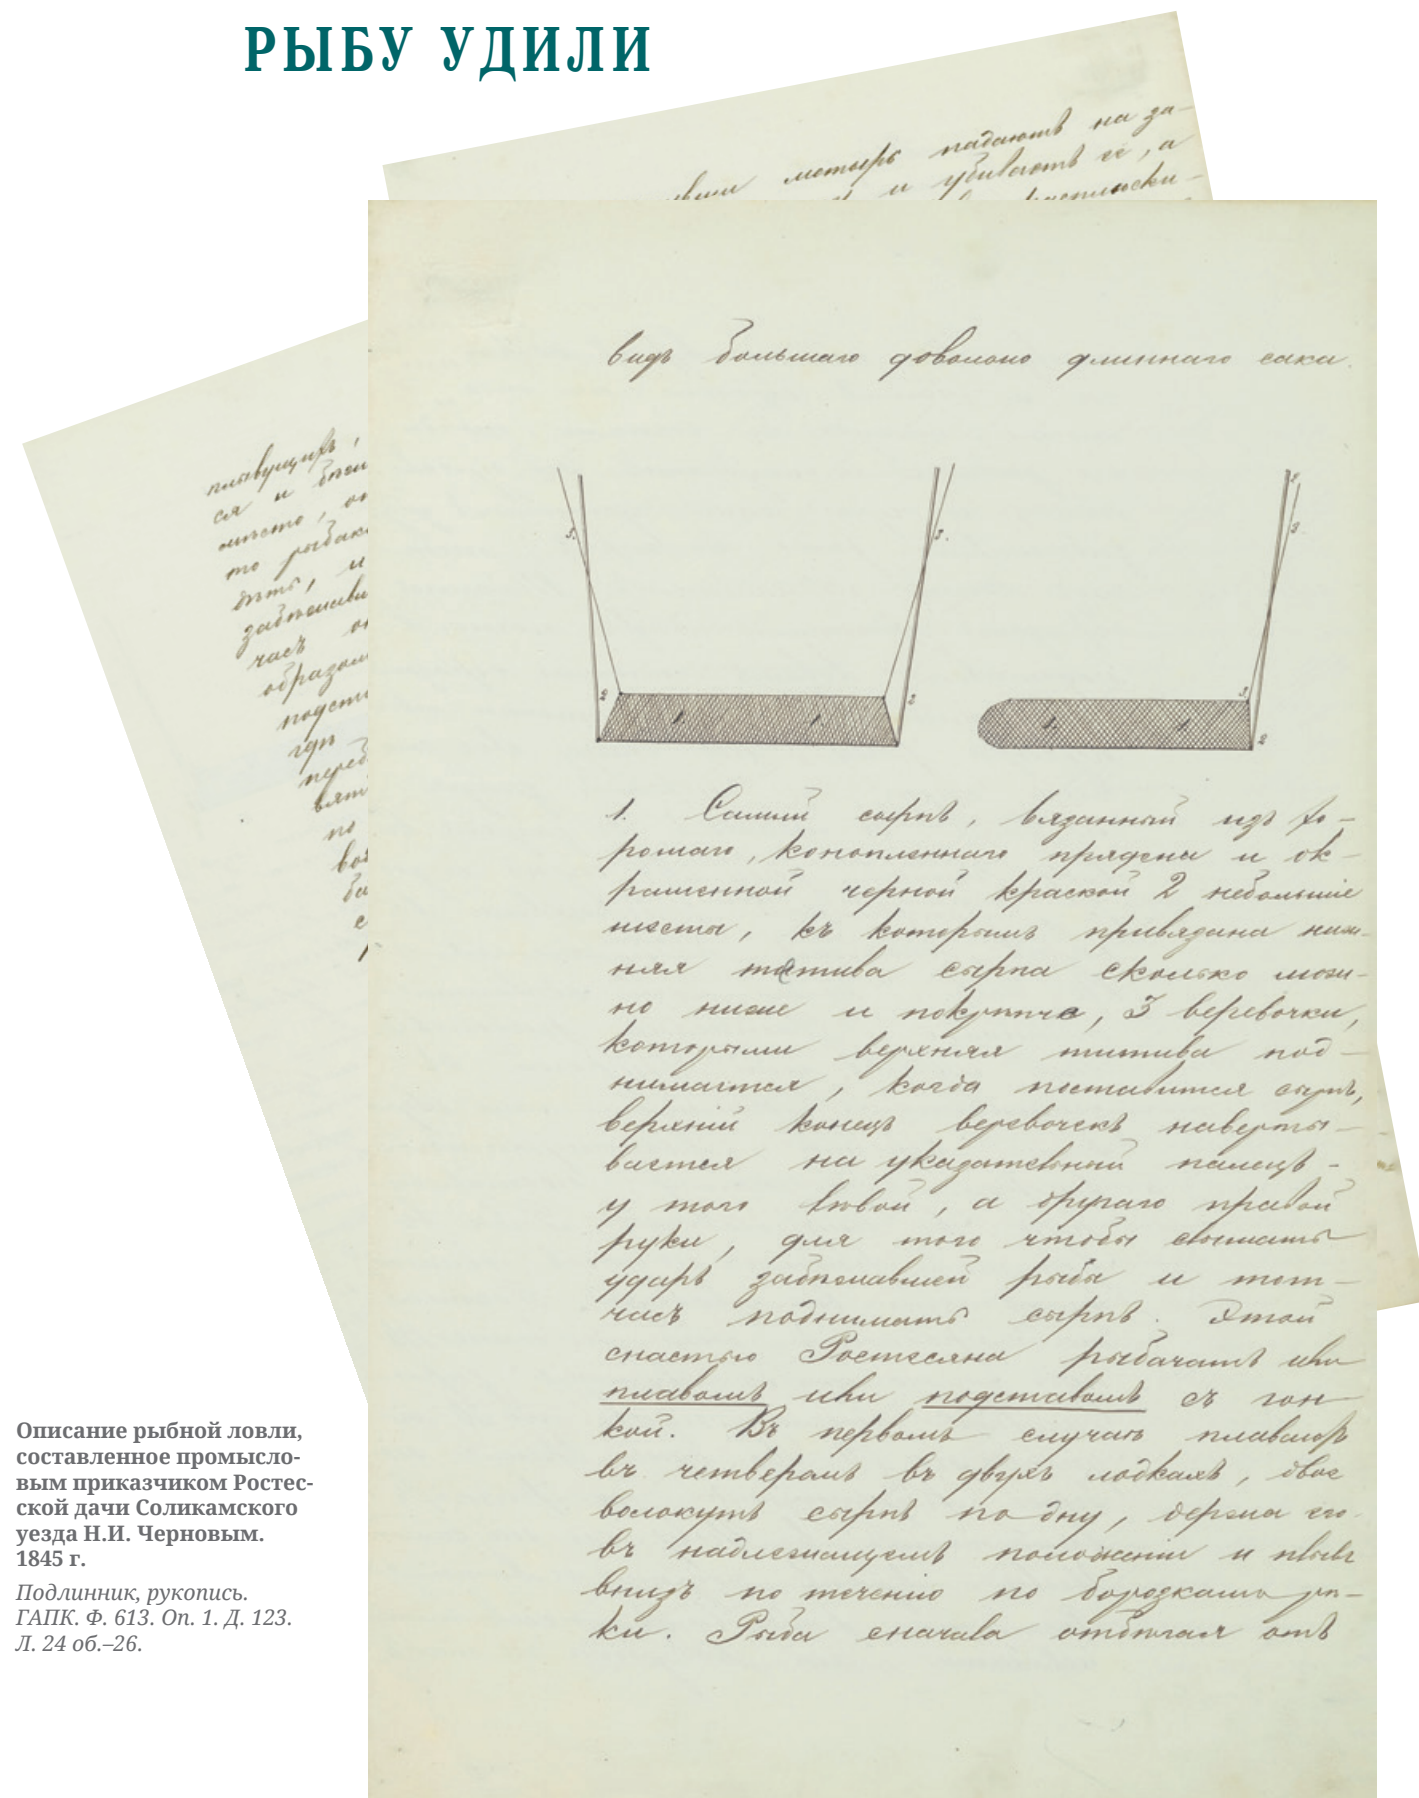 РЫБУ УДИЛИ
матыръ падаютъ на за-
и убиваютъ ее, а
плывущихъ,
ся и
то
часъ
по
видъ большаго довольно длиннаго сака.
3.
3.
3.
3.
2
2
3.
2
1.
1.
1.
1.
1. Самый сырпъ, вязанный изъ хо-
рошаго, конопленнаго прядена и ок-
рашенной черной краской 2 небольшіе
шесты, къ которымъ привязана ниж-
няя тетива сырпа сколько мож-
но ниже и покрѣпче, 3 веревочки,
которыми верхняя титива под-
нимается, когда поставится сырпъ,
верхній конецъ веревочекъ наверты-
вается на указательный палецъ -
у того лѣвой, а другаго правой
руки, для того чтобы слышать
ударъ забѣжавшей рыбы и тот-
часъ поднимать сырпъ. Этой
снастью Ростесяна рыбачатъ или
плавомъ или подставомъ съ гон-
кой. Въ первомъ случаѣ плаваютъ
въ четверомъ въ двухъ лодкахъ, двое
волокутъ сырпъ по дну, держа его
въ надлежащемъ положеніи и плывя
внизъ по теченію по бороздкамъ рѣ-
ки. Рыба сначала отбѣгая отъ
Описание рыбной ловли,
составленное промысло-
вым приказчиком Ростес-
ской дачи Соликамского
уезда Н.И. Черновым.
1845 г.
Подлинник, рукопись.
ГАПК. Ф. 613. Оп. 1. Д. 123.
Л. 24 об.–26.